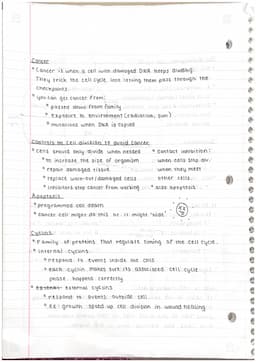 Cancer
* Cancer is when a cell with damaged DNA keeps dividing.
They trick the cell cycle into letting them pass through the
checkpoints.
* You can get cancer from:
* passed down from family
* Exposure to environment (radiation, sun)
* mutations when DNA is copied
Controls on cell division to avoid cancer
* Cells should only divide when needed
* Contact inhibition:
* to increase the size of organism
when cells stop div.
* repair damaged tissue
when they meet
* replace worn-out/damaged cells
other cells.
* inhibitors stop cancer from working
* also apoptosis
Apoptosis
* programmed cell death
* cancer cell might do this or it might "hide"
Cyclins
* Family of proteins that regulate timing of the cell cycle.
* internal cyclins
* respond to events inside the cell
* each cyclin makes sure its associated cell cycle
phase happens correctly
* external cyclins
* respond to events outside cell
* EX: growth, speed up cell division in wound healing